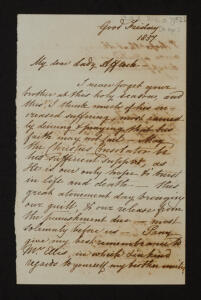 Good Friday
1857
My dear Lady Affleck
I never forget your
brother at this holy season and
this I think much of his in-
creased suffering, most earnestly
desiring & praying that his
faith may not fail - May
the Christian's Consolation be
his all sufficient support, as
He is our only hope & trust
in life and death - this
great atonement day brings
our guilt & our release from
the punishment due - most
solemnly before us - Pray
give my best remembrances to
Mr. Ellis in which & in kind
regards to yourself my brother unites